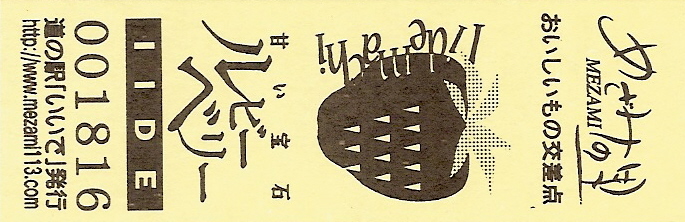 めざみの里
MEZAMI
おいしいもの交差点
Iidemachi
甘い宝石
ルビーベリー
IIDE
001816
道の駅「いいで」発行
http://www.mezami113.com